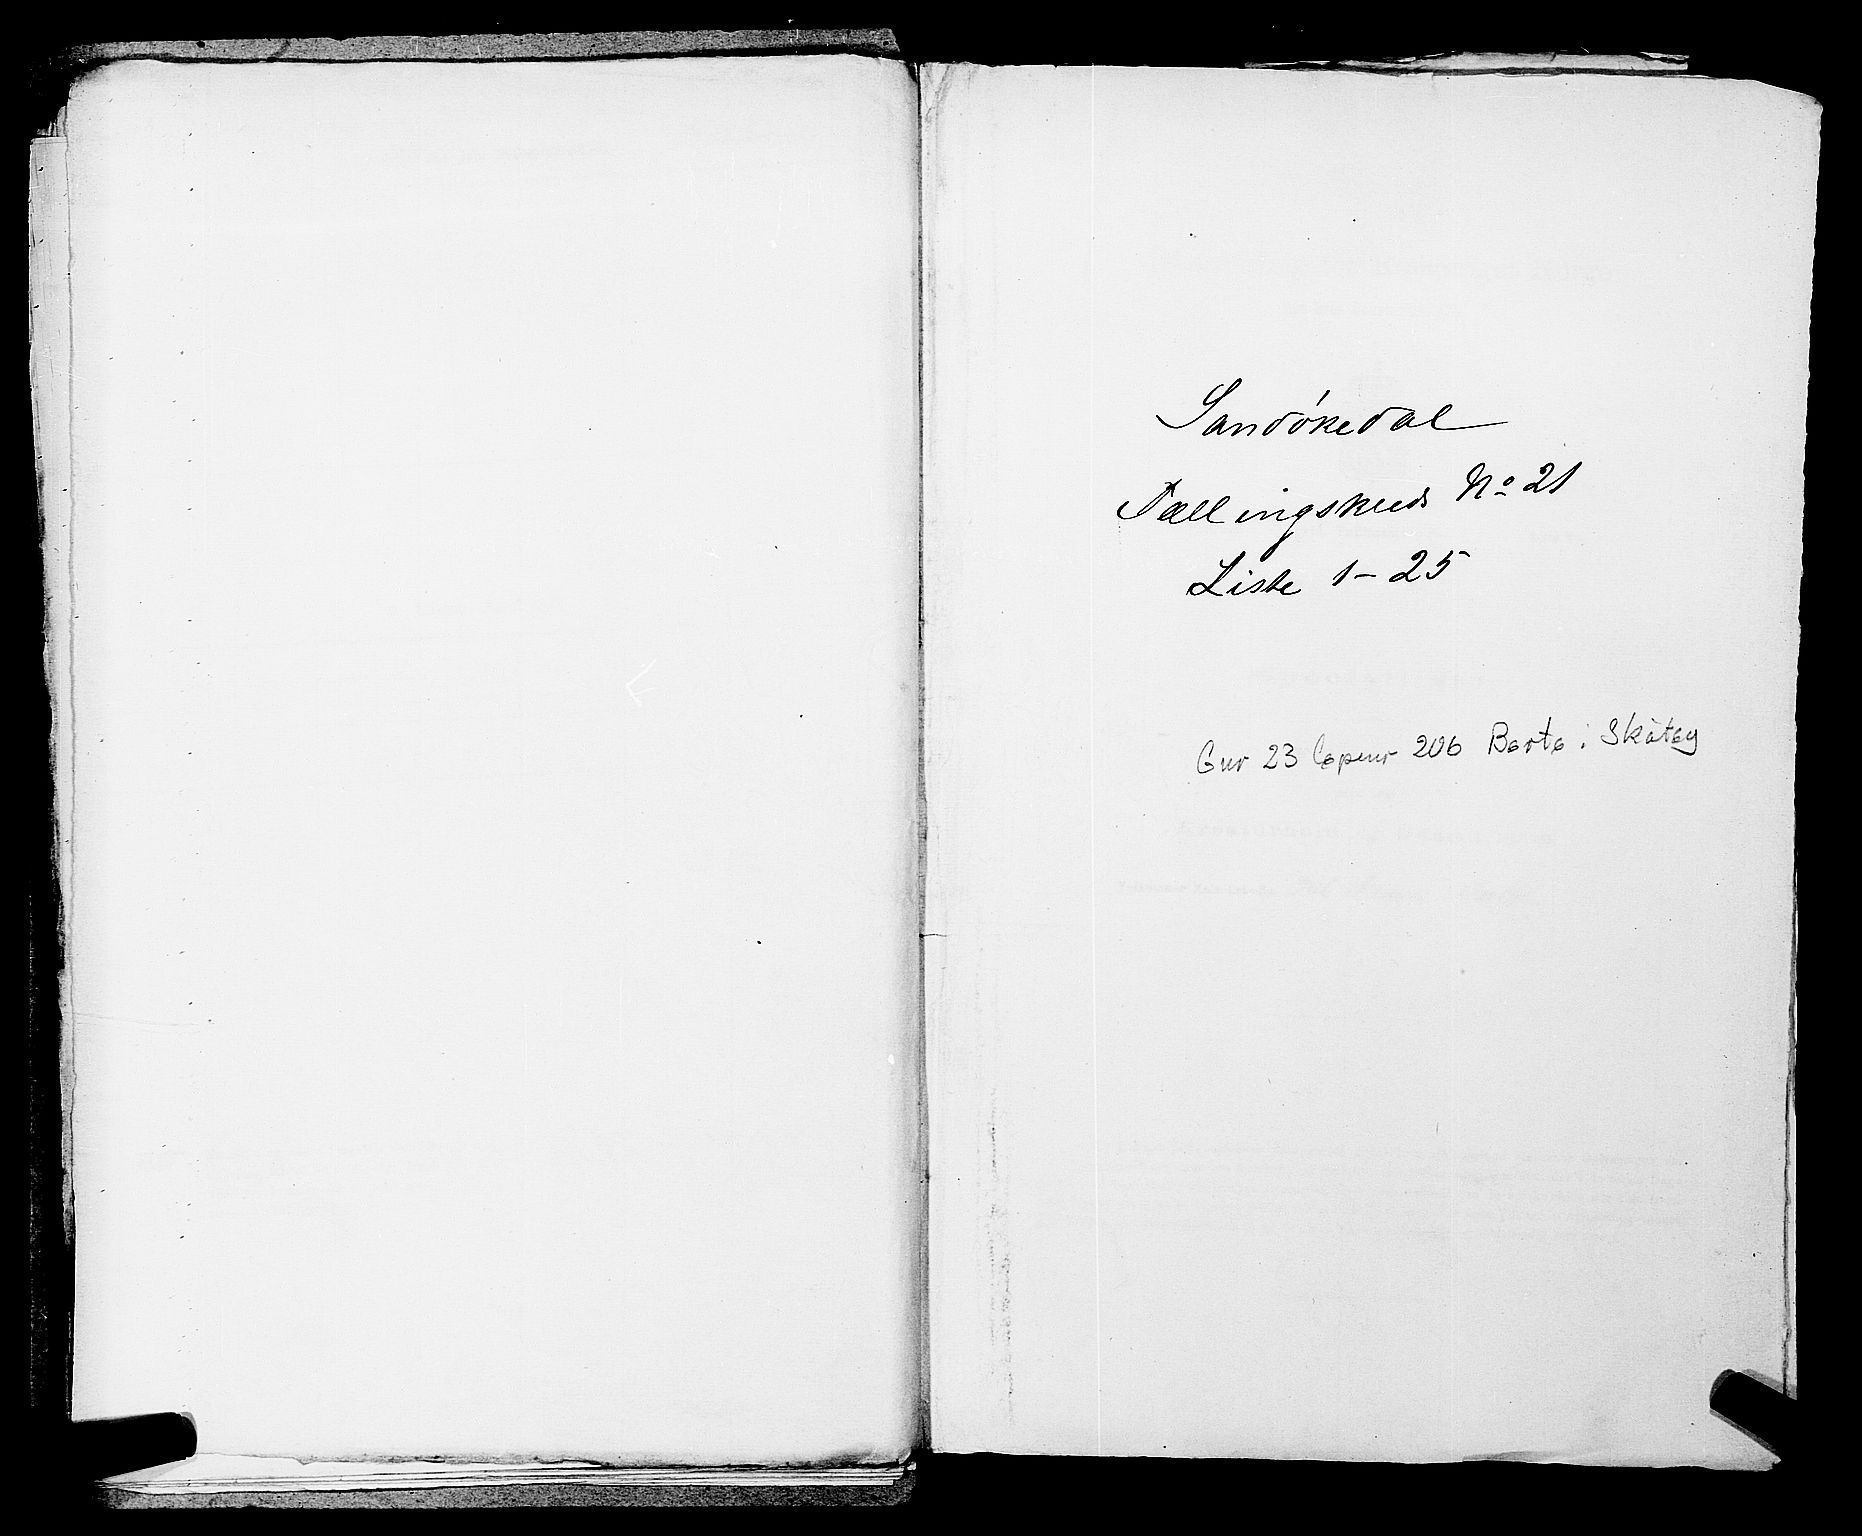 Sandøkedal
Tællingskreds No 21
Liste 1-25
Gnr 23 Løpenr 206 Barte i Skåtøy